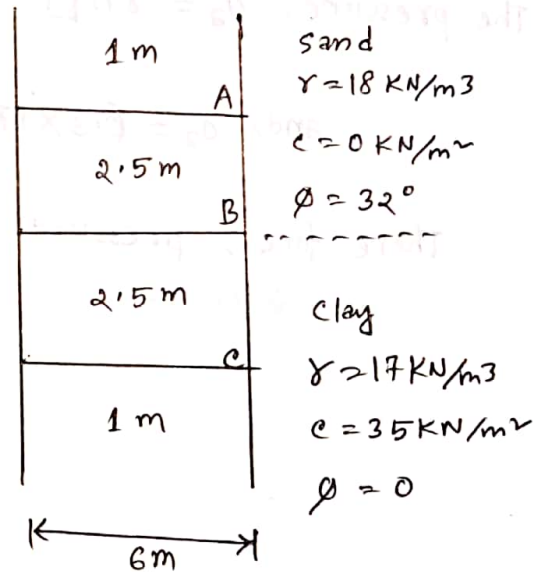 1 m
A
2.5 m
B
2.5 m
C
1 m
6m
sand
γ = 18 KN/m3
c = 0 KN/m²
φ = 32°
clay
γ = 17 KN/m3
c = 35 KN/m²
φ = 0